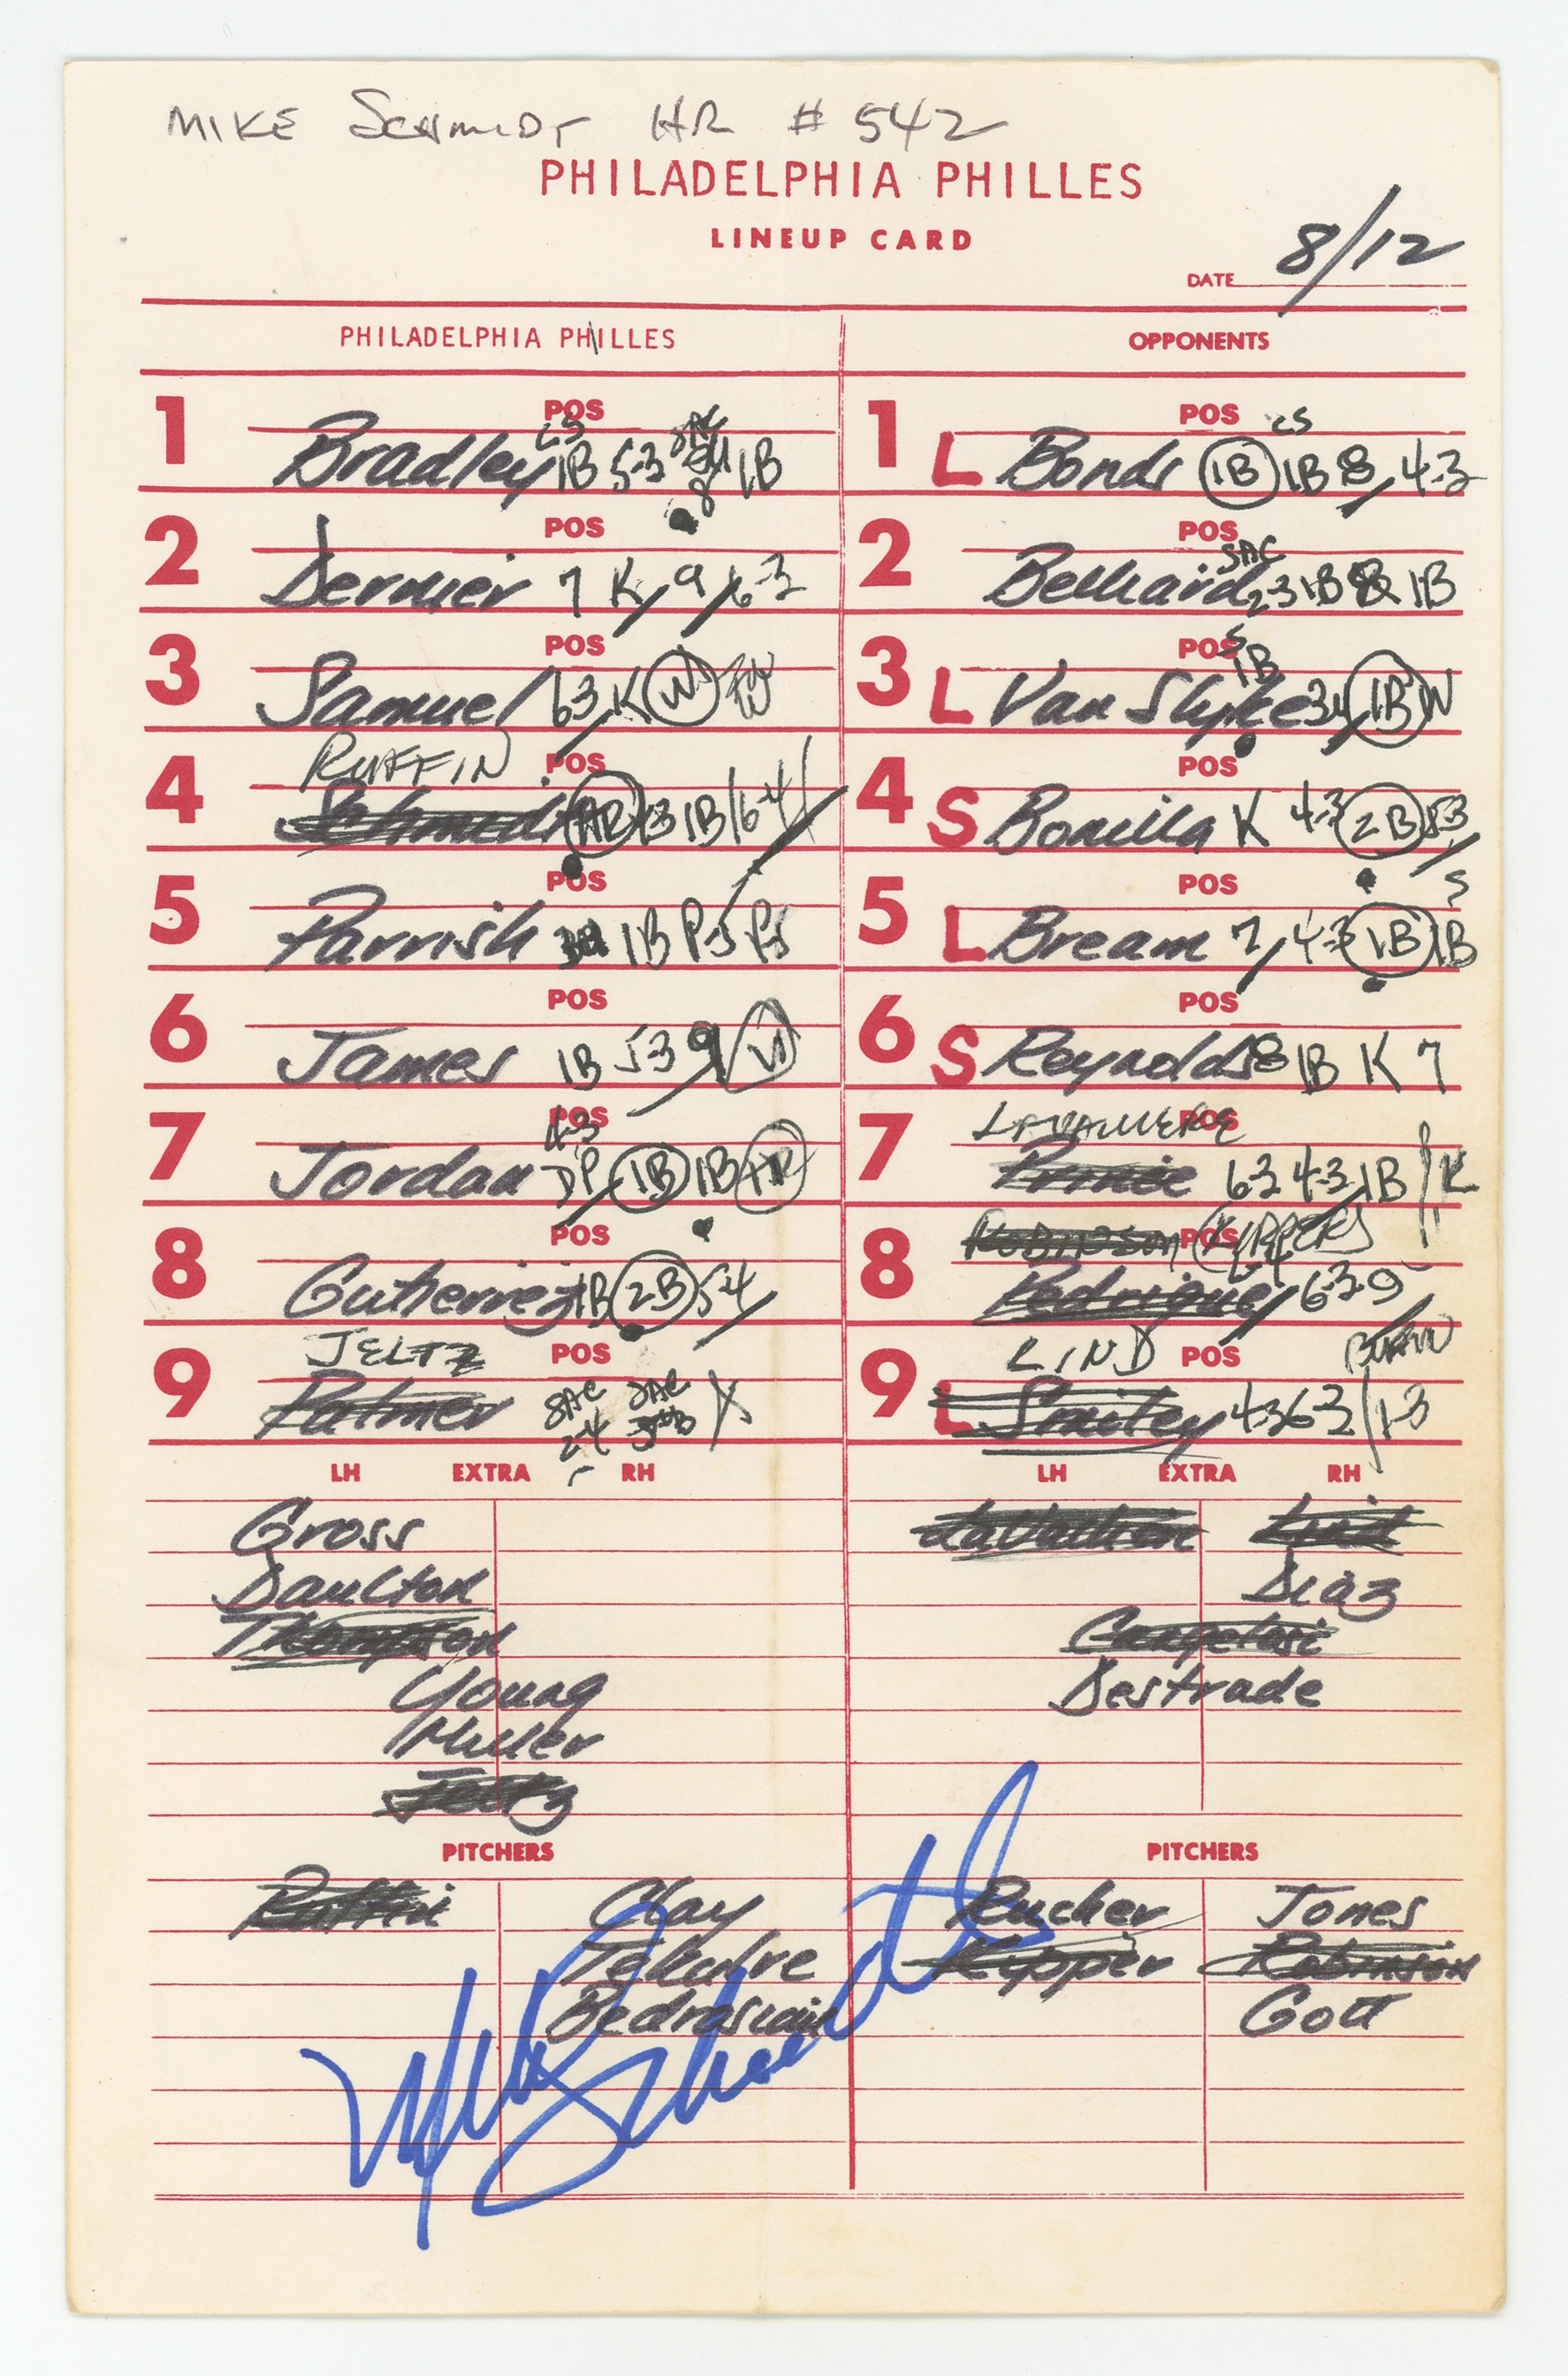 MIKE SCHMIDT HR # 542
PHILADELPHIA PHILLES
LINEUP CARD
DATE 8/12
PHILADELPHIA PHILLES
OPPONENTS
1 POS
CS SAC
Bradley 1B 5-3 8 1B
2 POS
Dernier 7 K 9 6-3
3 POS
Samuel 63 K W
RUFFIN
4 POS
Schmidt HR 13 1B 6-4
5 POS
Parrish 1B P-5 P5
6 POS
James 1B 5-3 9 W
7 POS
4-3
Jordan DP 1B 1B HR
8 POS
Gutierrez 1B 2B 5-4
JELTZ
9 POS
Palmer SAC 2-4 SAC
LH EXTRA RH
Gross
Daulton
Thompson
Young
Miller
Jeltz
PITCHERS
Ruffin Clay
Tekulve
Bedrosian
1 POS CS
L Bonds 1B 1B 8 4-3
2 POS
SAC
Belliard 2-3 1B 8 1B
3 POS S
1B
L Van Slyke 34 1B W
4 POS
S Bonilla K 4-3 2B 53
5 POS S
L Bream 7 4-3 1B 1B
6 POS
S Reynolds 8 1B K 7
LAVALLIERE
7 POS
Prince 6-3 4-3 1B K
ROBINSON KIPPER
8 POS
Pedrique 6-3 9
LIND
9 POS
L Smiley 4-3 6-3 1-3
LH EXTRA RH
LaValliere Lind
Diaz
Cangelosi
Destrade
PITCHERS
Rucher Jones
Kipper Robinson
Gott
Mike Schmidt